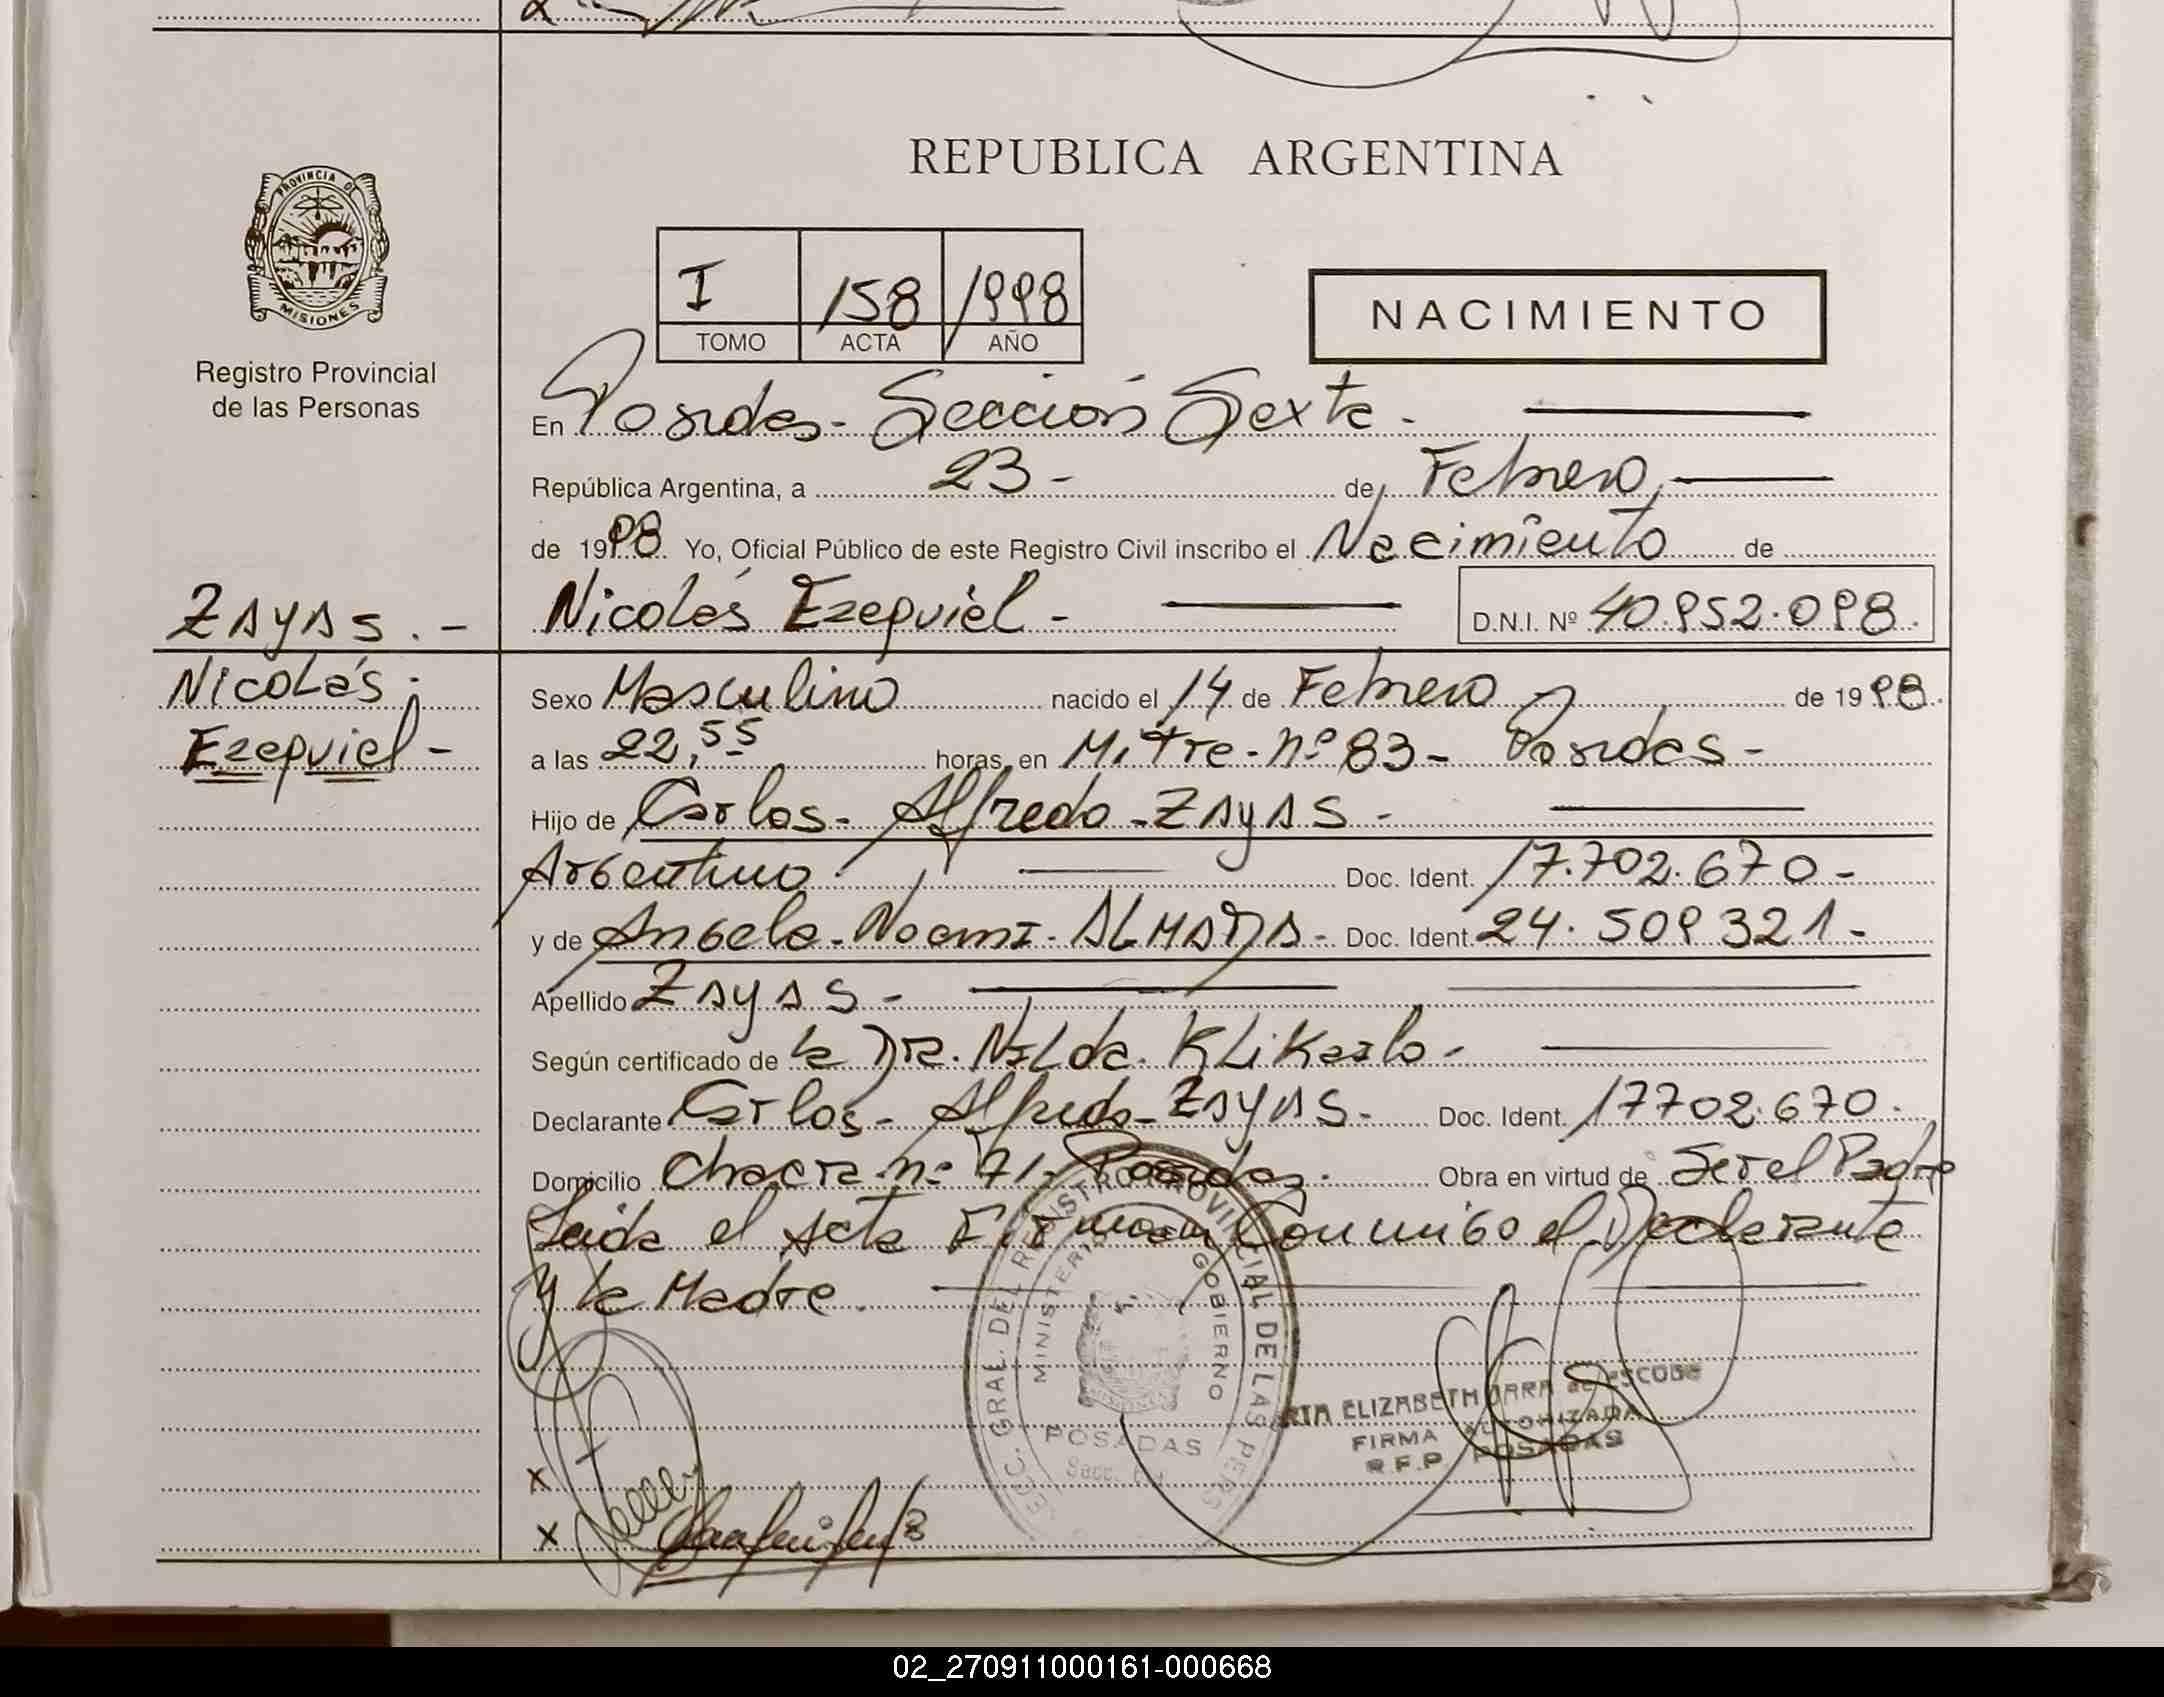 REPUBLICA ARGENTINA
PROVINCIA DE
MISIONES
Registro Provincial
de las Personas
I 158 1998
TOMO ACTA AÑO
NACIMIENTO
En Posadas - Sección Sexta -
República Argentina, a 23 - de Febrero
de 1998 Yo, Oficial Público de este Registro Civil inscribo el Nacimiento de
Zayas . -
Nicolás Ezequiel - D.N.I. Nº 40.952.098.
Nicolás .
Ezequiel -
Sexo Masculino nacido el 14 de Febrero de 1998.
a las 22,55 horas, en Mitre - nº 83 - Posadas -
Hijo de Carlos - Alfredo - Zayas -
Argentino Doc. Ident. 17.702.670 -
y de Angela - Noemi - ALMADA - Doc. Ident. 24.509 321 -
Apellido Zayas -
Según certificado de la Dra. Nilda
Declarante Carlos - Alfredo - Zayas - Doc. Ident. 17702.670.
Domicilio Chacra nº 71 - Posadas . Obra en virtud de Ser el Padre
Leida el Acta Firman Conmigo el Declarante
y la Madre .
GRAL. DEL REGISTRO PROVINCIAL DE LAS PERS
MINISTERI GOBIERNO
POSADAS
ELIZABETH JARA de ESCOBE
FIRMA AUTORIZADA
R.F.P. POSADAS
x
x
02_270911000161-000668